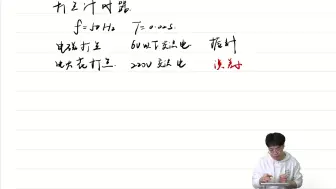 打点计时器
f=50Hz T=0.02s
电磁打点 6V以下交流电 振针
电火花打点 220V交流电 误差小